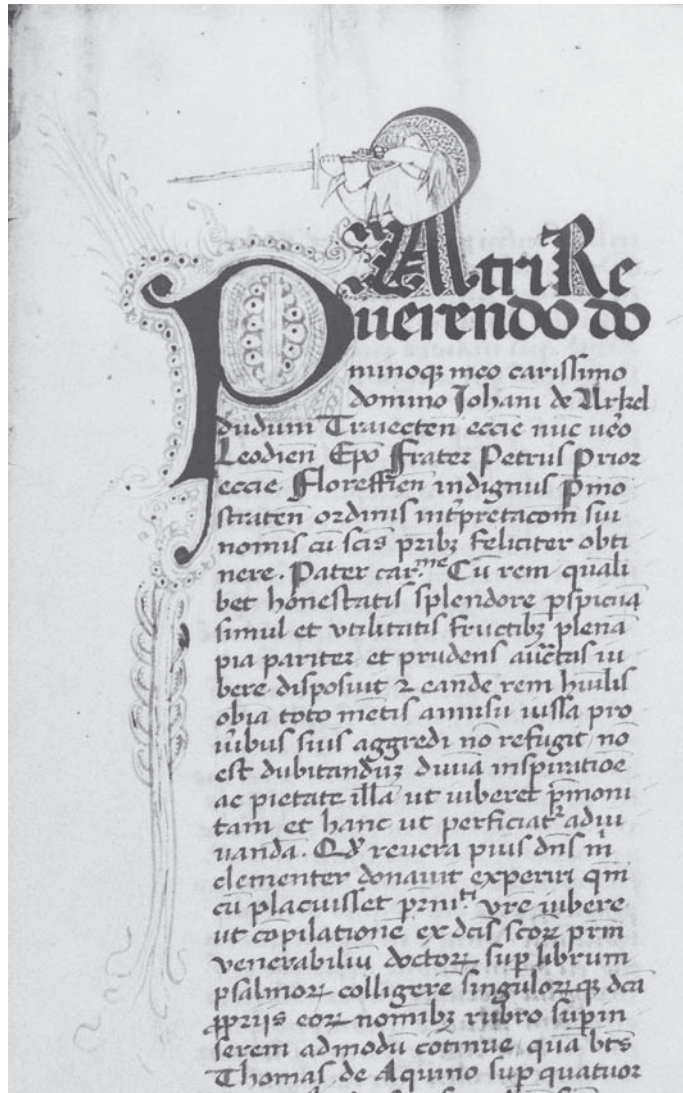 PAtri Re
uerendo do
minoqꝫ meo carissimo
domino Johāni de Arkel
dudum Traiecten̄ eccīe nūc uēo
Leodien̄ Ep̄o Frater Petrus Prior
eccīe Floreffien̄ indignus Pmo
straten̄ ordinis int̄pretacom̄ sui
nomīs cū sc̄is p̄ribꝫ feliciter obti
nere. Pater car.ᵐᵉ Cū rem quāli
bet honestatis splendore ꝑspicuā
simul et vtilitatis fructibꝫ plenā
pia pariter et prudens auc̄tas iu
bere disposuit ⁊ eandē rem hūilis
obīa toto mētis annisu iussa pro
uiribus suis aggredi nō refugit, nō
est dubitanduꝫ diuīa inspiratiōe
ac pietate illā ut iuberet p̄moni
tam et hanc ut perficiatᷣ adiu
uandā. Qđ reuera pius dn̄s m̄
clementer donauit experiri qm̄
cū placuisset pr̄niᵗⁱ vr̄e iubere
ut cōpilationē ex dc̄is sc̄oꝝ pr̄m
venerabiliū doctoꝝ suꝑ librum
psalmoꝝ colligerē singuloꝝqꝫ dc̄a
ꝓpriis eoꝝ nominibꝫ rubro suꝑin
serem admodū cōtinue, quā bt̄s
Thomas de Aquino suꝑ quatuor